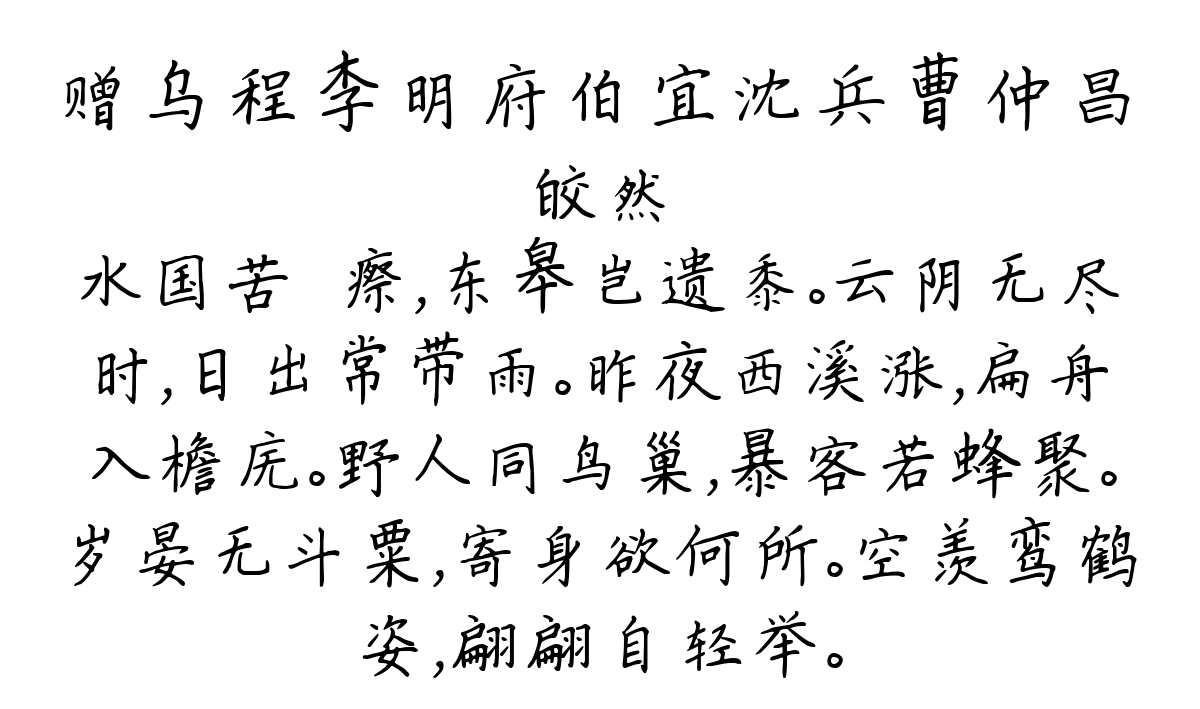 赠乌程李明府伯宜沈兵曹仲昌
皎然
水国苦 瘵,东皋岂遗黍。云阴无尽
时,日出常带雨。昨夜西溪涨,扁舟
入檐庑。野人同鸟巢,暴客若蜂聚。
岁晏无斗粟,寄身欲何所。空羡鸾鹤
姿,翩翩自轻举。